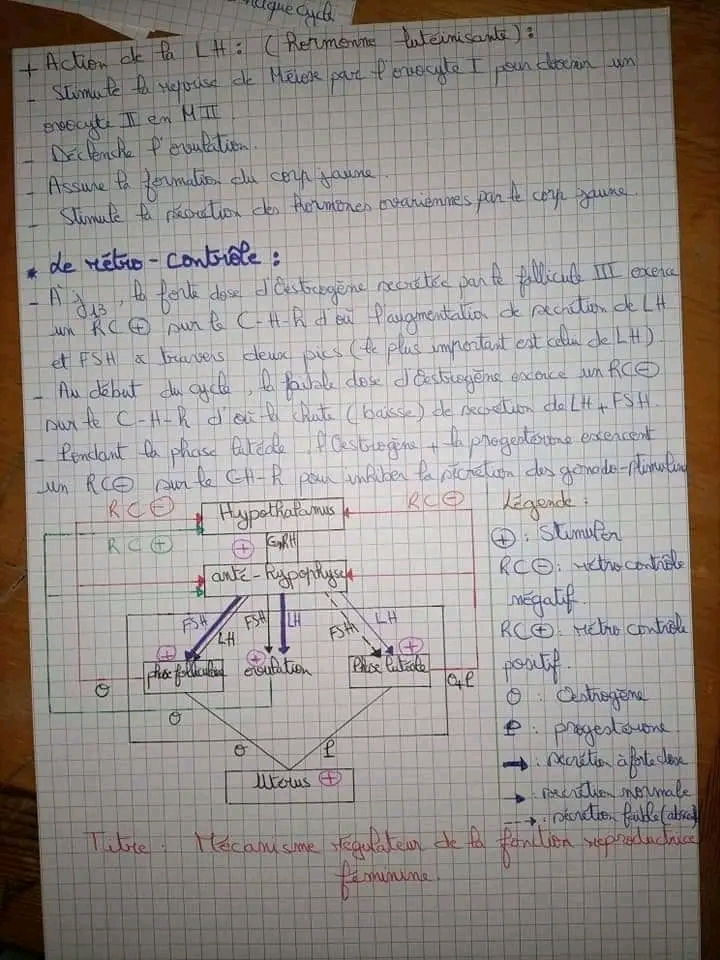 + Action de la LH : (Hormonne lutéinisante) :
- Stimule la reprise de Méiose par l'ovocyte I pour donner un
ovocyte II en MII
- Déclenche l'ovulation.
- Assure la formation du corp jaune.
- Stimule la sécrétion des hormones ovariennes par le corp jaune.
* Le rétro-contrôle :
- A j13, la forte dose d'Oestrogène secrétée par le follicule III exerce
un RC⊕ sur le C-H-R d'où l'augmentation de secrétion de LH
et FSH à travers deux pics (le plus important est celui de LH)
- Au début du cycle, la faible dose d'Oestrogène exerce un RC⊖
sur le C-H-R d'où la chute (baisse) de secretion de LH + FSH.
- Pendant la phase lutéale, l'Oestrogène + la progesterone exercent
un RC⊖ sur le CH-R pour inhiber la sécrétion des gonado-stimulines
RC⊖ Hypothalamus RC⊖
RC⊕ ⊕ GnRH
anté-hypophyse
FSH LH FSH LH FSH LH
⊕ ⊕ ⊕
phase folliculaire ovulation Phase lutéale
O O+P
O
O P
Utérus ⊕
Légende :
⊕ : Stimuler
RC⊖ : rétro contrôle
négatif.
RC⊕ : rétro contrôle
positif.
O : Oestrogène
P : progesterone
→ : secrétion à forte dose
→ : secrétion normale
--→ : sécretion faible
Titre : Mécanisme régulateur de la fonction reproductrice
féminine.